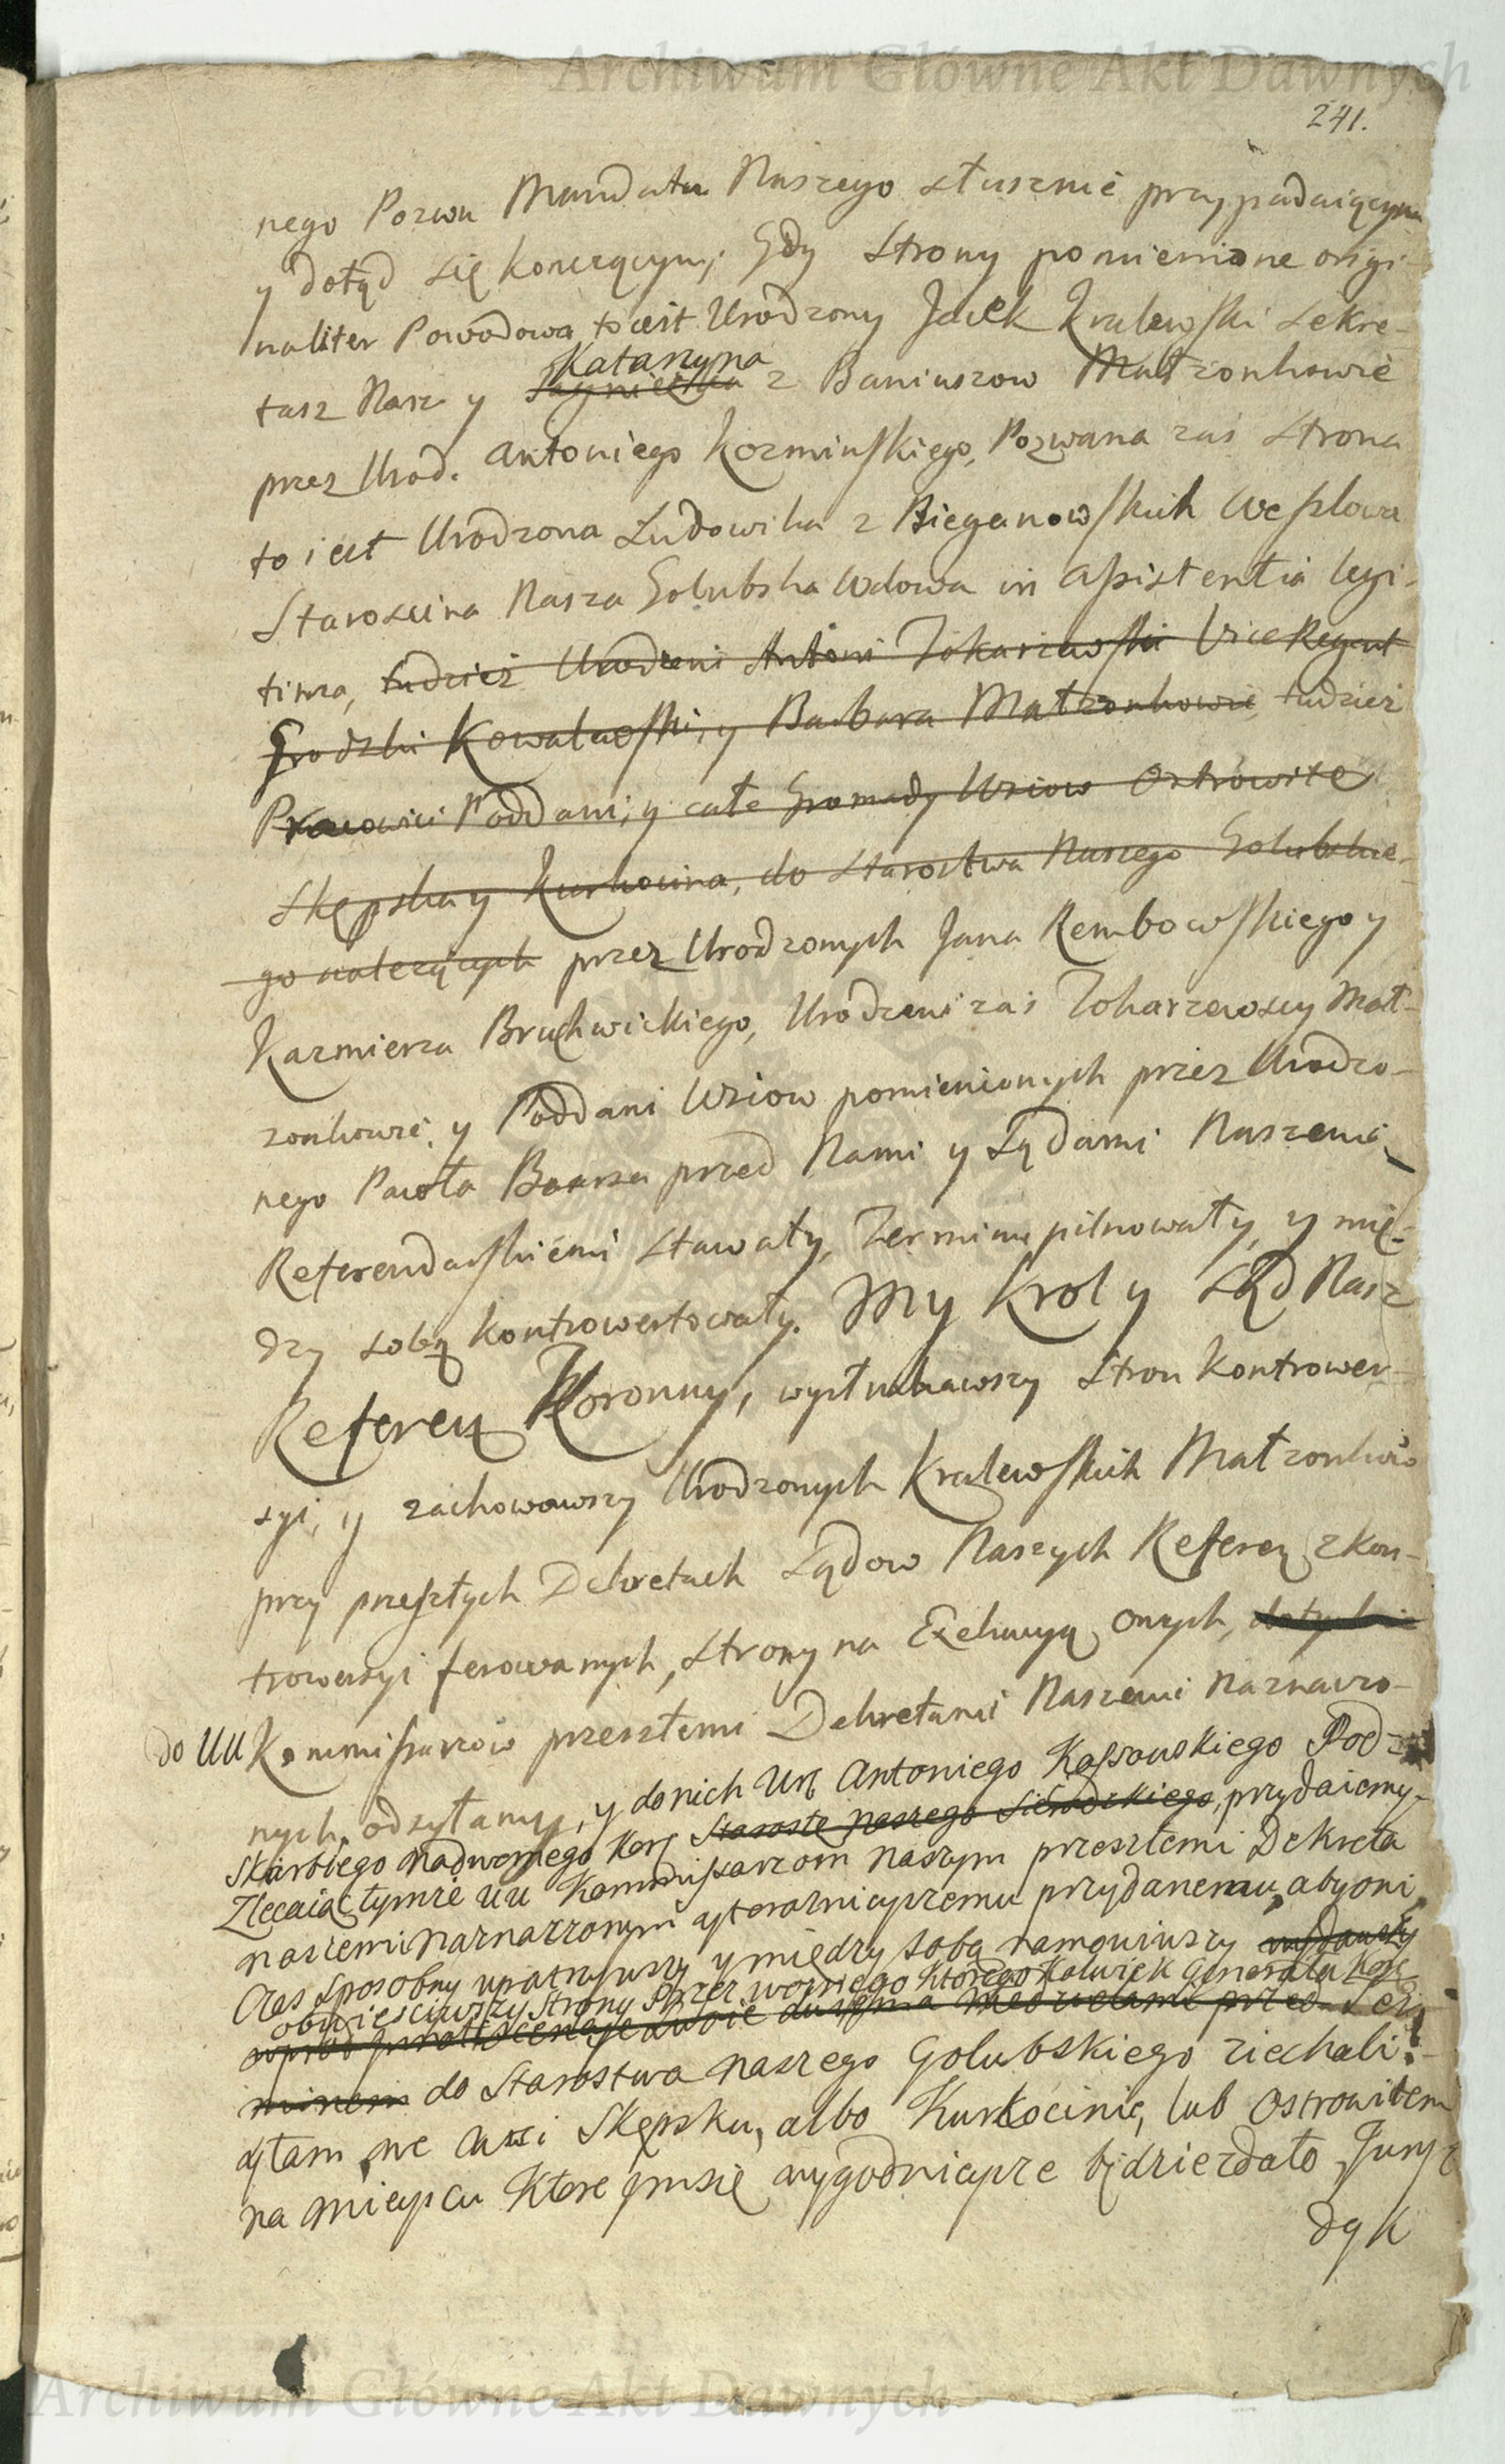 Archiwum Główne Akt Dawnych
241.
nego Pozwu Mandatu Naszego słusznie przypadaiącym
y dotąd się konczącym; Gdy Strony pomienione origi-
naliter Powodowa to iest Urodzony Jacek Kralewski Sekre-
Katarzyna
tarz Nasz y z Baniuszow Małzonkowie
przez Urod. Antoniego Kozminskiego, Pozwana zaś Strona
to iest Urodzona Ludowika z Bieganowskich Wesslowa
Starościna Nasza Golubska Wdowa in Assistentia legi-
tima, tudzież Urodzeni Antoni Tokarzewski ViceRegent
Grodzki Kowalewski, y Barbara Małzonkowie tudzież
Pracowici Poddani, y całe Gromady Wsiow Ostrowite
Skępska y Kurkocina, do Starostwa Naszego Golubskie-
go należących przez Urodzonych Jana Rembowskiego y
Kazmierza Bruchwickiego, Urodzeni zaś Tokarzewscy Mał-
zonkowie, y Poddani Wsiow pomienionych przez Urodzo-
nego Pawła Baarza przed Nami y Sądami Naszemi
Referendarskiemi stawały, Terminu pilnowały, y mię-
dzy sobą kontrowertowały. My Krol y Sąd Nasz
Referen Koronny, wysłuchawszy Stron Kontrower-
syi, y zachowawszy Urodzonych Kralewskich Małzonkow
przy przeszłych Dekretach Sądow Naszych Referen z kon-
trowersyi ferowanych, Strony na Exekucyą onych,
do UU Kommissarzow przeszłemi Dekretami Naszemi naznaczo-
nych odsyłamy, y do nich Ur Antoniego Kossowskiego Pod-
Skarbiego Nadwornego Kor Starostę Naszego Sieradzkiego, przydaiemy
Zlecaiąc tymże UU Kommissarzom Naszym przeszłemi Dekreta
naszemi naznaczonym y teraznieyszemu przydanemu, aby oni
Czas Sposobny upatrzywszy y między sobą namowiwszy
obwieściwszy Strony przez Woźnego Którego Kolwiek Generała Kor
do Starostwa naszego Golubskiego ziechali
y tam we wsi Skępsku, albo Kurkocinie, lub Ostrowitem
na mieyscu Ktore im się wygodnieysze będzie zdało Jurys
dyk
Archiwum Główne Akt Dawnych